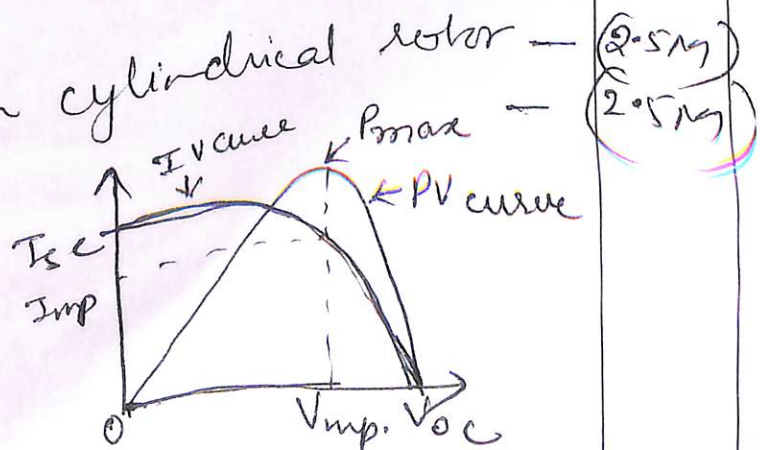 cylindrical rotor — (2.5M)
— (2.5M)
IV curve
Pmax
PV curve
Isc
Imp
O
Vmp. Voc